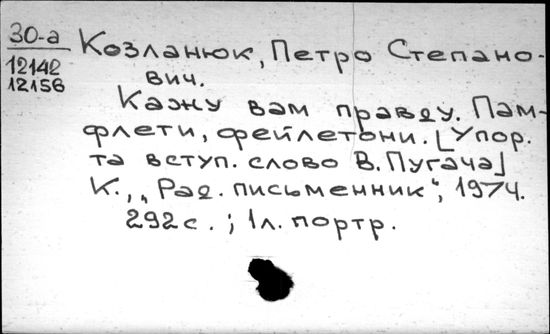 30-а
12142
12156
Козланюк, Петро Степано-
вич.
Кажу вам правду. Пам-
флети, фейлетони. [Упор.
та вступ. слово В. Пугача]
К., „Рад. письменник", 1974.
292 с. ; 1 л. портр.